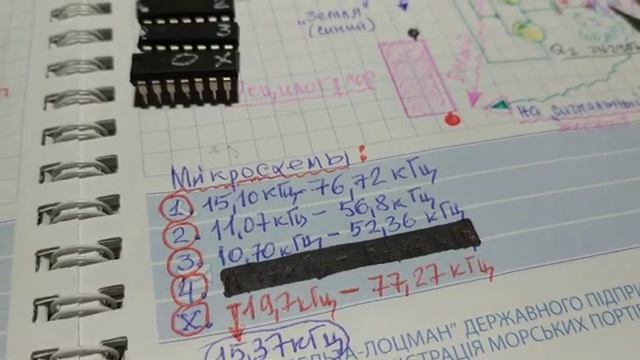 2
3
X
"Земля"
(синий)
Осциллограф
Q2 2N2222
на сигнальный
Микросхемы:
1. 15,10 кГц - 76,72 кГц
2. 11,07 кГц - 56,8 кГц
3. 10,70 кГц - 52,36 кГц
4.
X. 19,7 кГц - 77,27 кГц
15,37 кГц
ЛОЦМАН" ДЕРЖАВНОГО ПІДПРИ
ІСТРАЦІЯ МОРСЬКИХ ПОРТІ